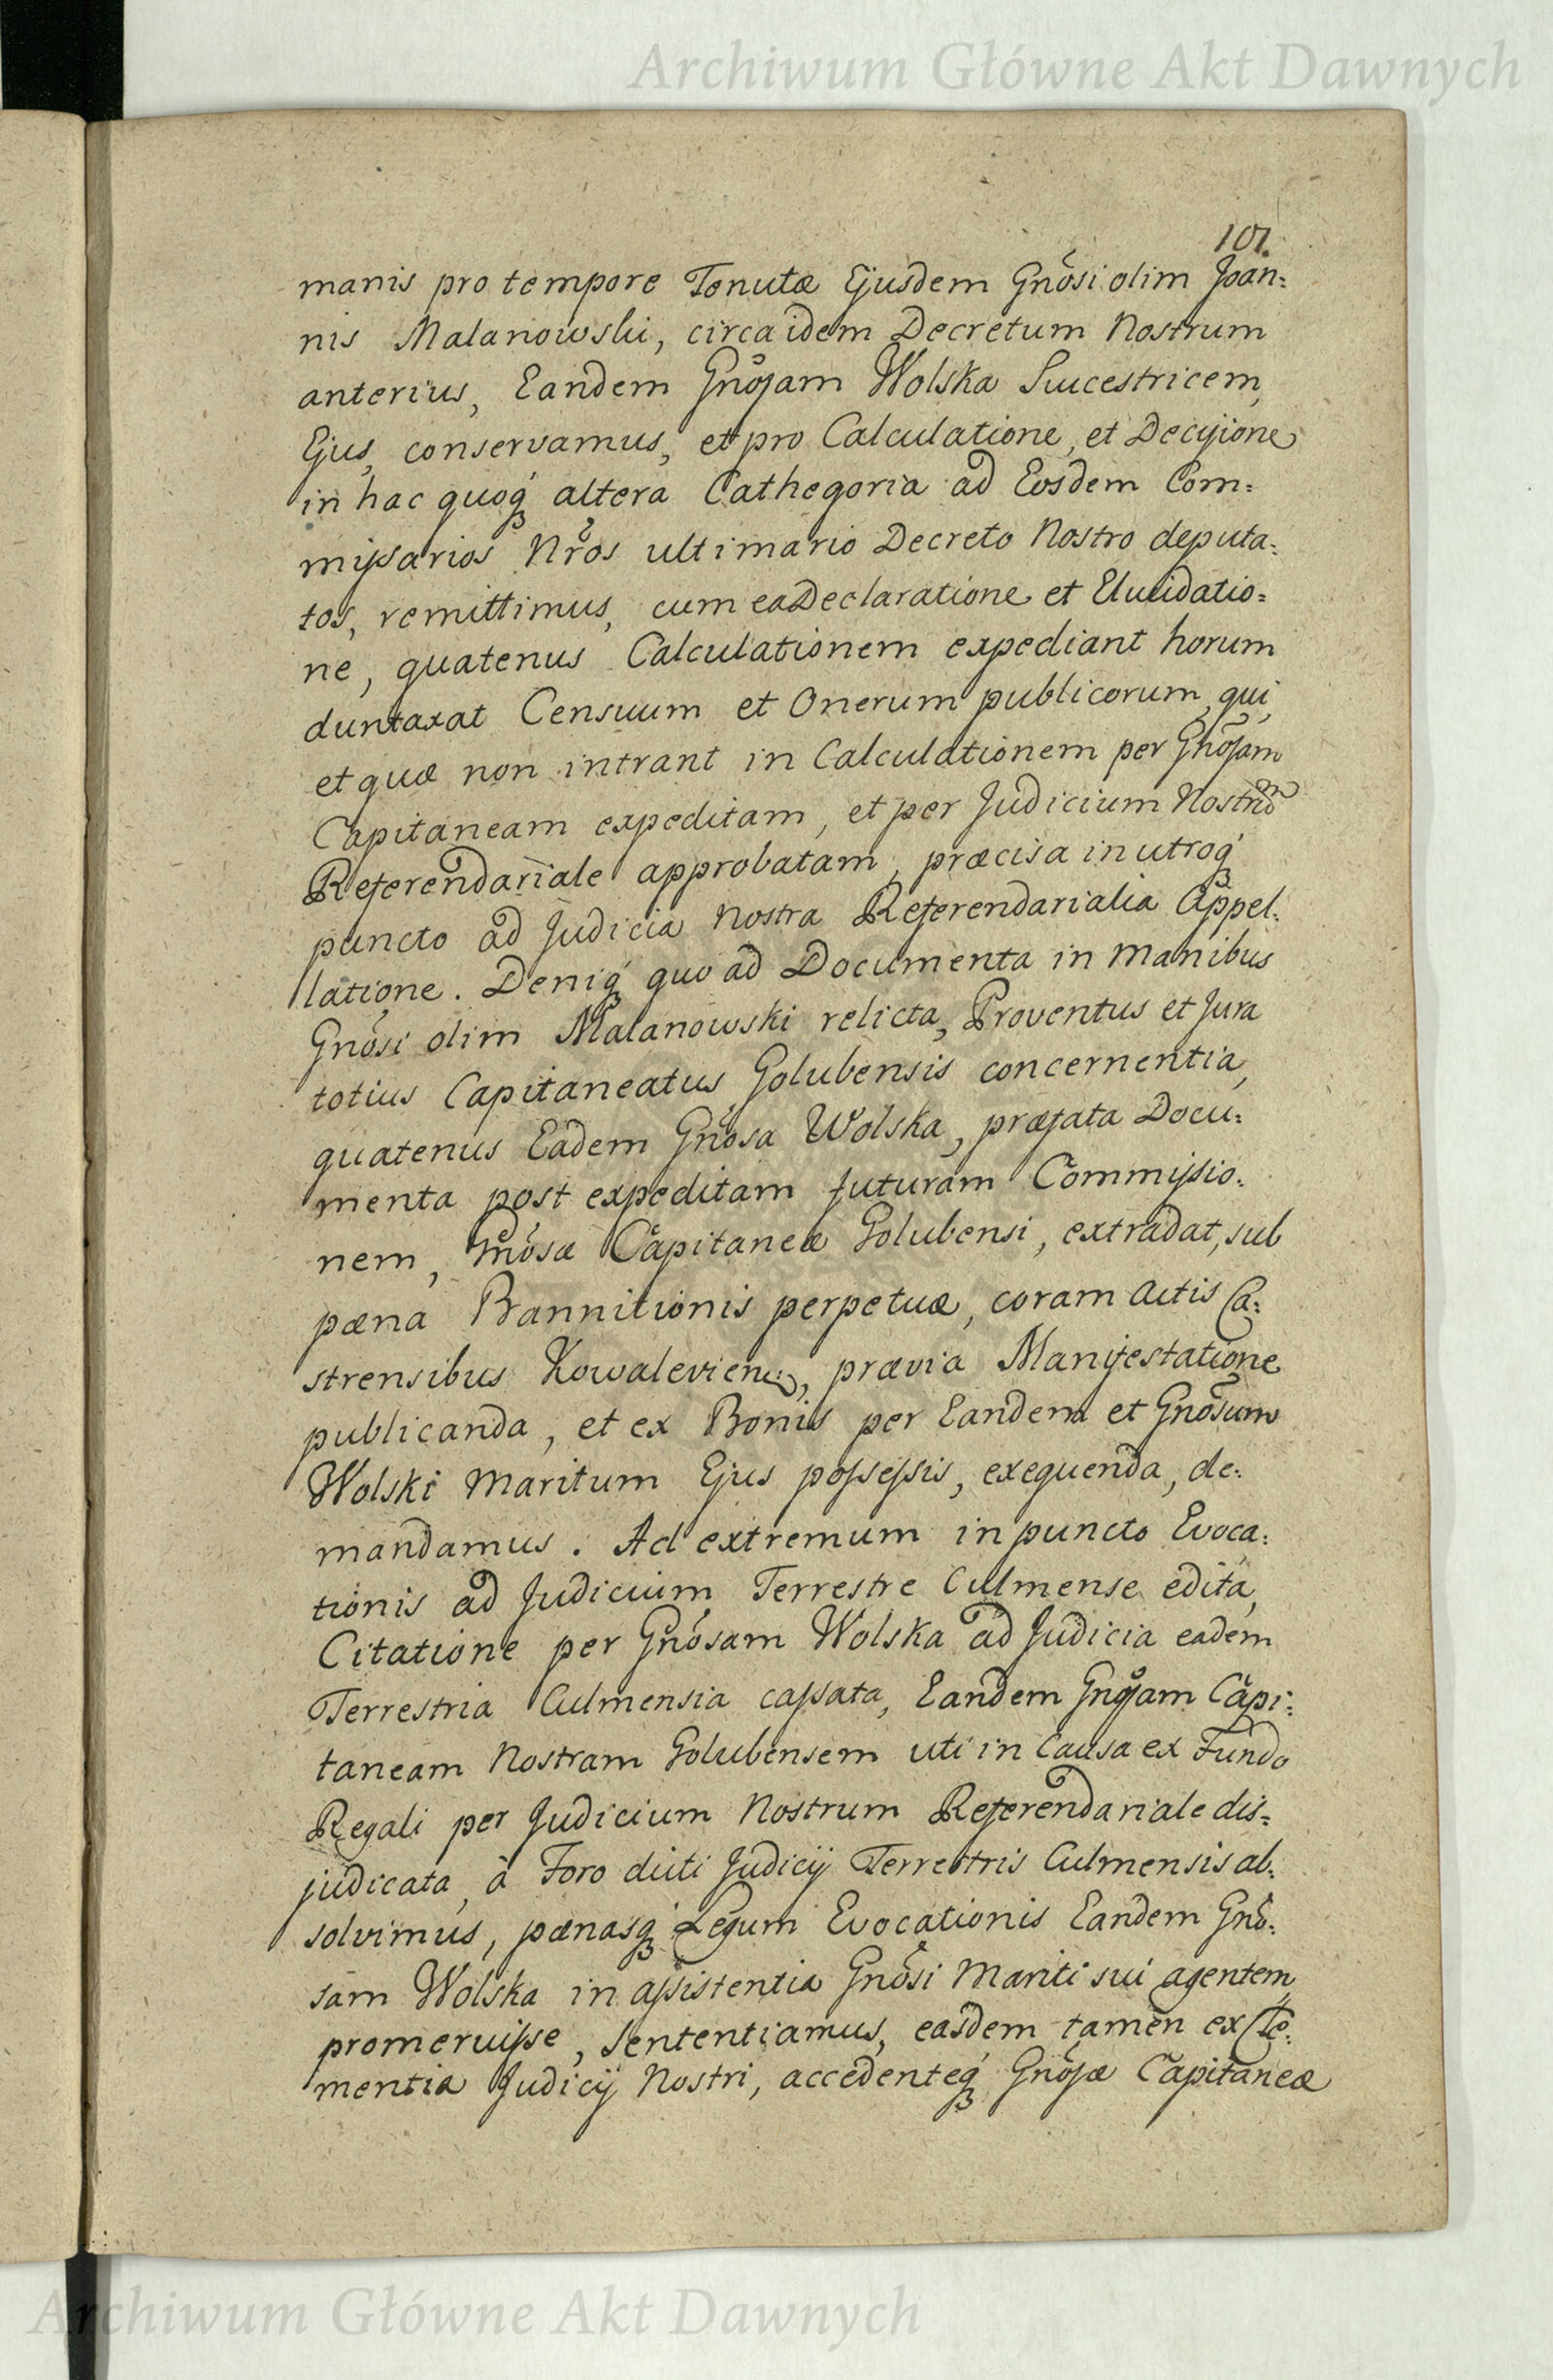 Archiwum Główne Akt Dawnych
101.
manis pro tempore Tenutæ Ejusdem Gnõsi olim Joan:
nis Malanowski, circa idem Decretum Nostrum
anterius, Eandem Gnõsam Wolska Succestricem,
Ejus, conservamus, et pro Calculatione, et Decisione
in hac quoq́ altera Cathegoria ad Eosdem Com:
missarios Nr̃os ultimario Decreto Nostro deputa:
tos, remittimus, cum ea Declaratione et Elucidatio:
ne, quatenus Calculationem expediant horum
duntaxat Censuum et Onerum publicorum, qui,
et quæ non intrant in Calculationem per Gnõsam
Capitaneam expeditam, et per Judicium Nostrũ
Referendariale approbatam, præcisa in utroq́
puncto ad Judicia Nostra Referendarialia Appel:
latione. Deniq́ quo ad Documenta in Manibus
Gnõsi olim Malanowski relicta, Proventus et Jura
totius Capitaneatus Golubensis concernentia,
quatenus Eadem Gnõsa Wolska, præfata Docu:
menta post expeditam futuram Commissio:
nem, Gnõsæ Capitaneæ Golubensi, extradat, sub
pæna Bannitionis perpetuæ, coram Actis Ca:
strensibus Kowalevien:, prævia Manifestatione
publicanda, et ex Bonis per Eandem et Gnõsum
Wolski Maritum Ejus possessis, exequenda, de:
mandamus. Ad extremum in puncto Evoca:
tionis ad Judicium Terrestre Culmense edita,
Citatione per Gnõsam Wolska ad Judicia eadem
Terrestria Culmensia cassata, Eandem Gnõsam Capi:
taneam Nostram Golubensem uti in Causa ex Fundo
Regali per Judicium Nostrum Referendariale dis:
judicata, à Foro dicti Judicij Terrestris Culmensis ab:
solvimus, pænasq́ Legum Evocationis Eandem Gnõ:
sam Wolska in assistentia Gnõsi Mariti sui agentem,
promeruisse, sententiamus, easdem tamen ex Cle:
mentia Judicij Nostri, accedenteq́ Gnõsæ Capitaneæ
Archiwum Główne Akt Dawnych